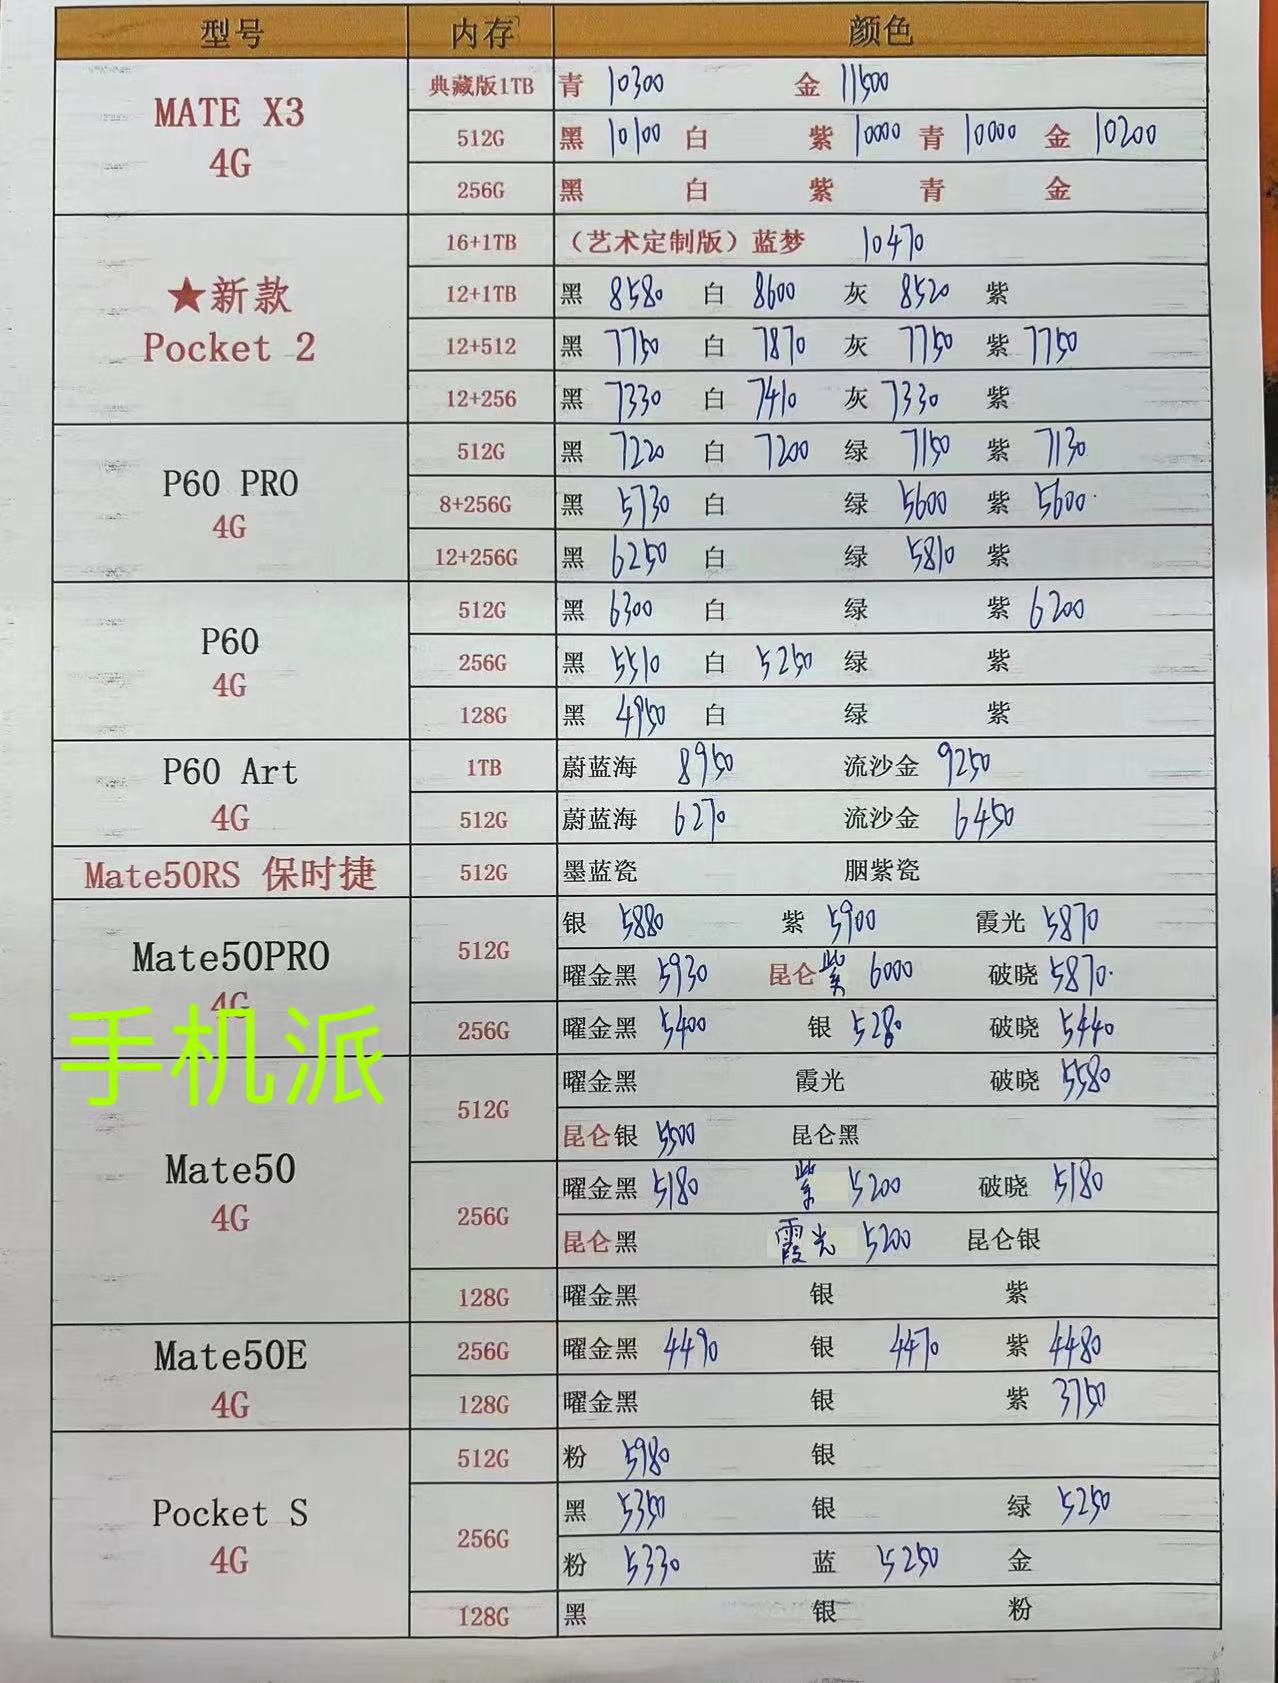 型号 内存 颜色
MATE X3
4G
典藏版1TB 青 10300 金 11500
512G 黑 10100 白 紫 10000 青 10000 金 10200
256G 黑 白 紫 青 金
★新款
Pocket 2
16+1TB （艺术定制版）蓝梦 10470
12+1TB 黑 8580 白 8600 灰 8520 紫
12+512 黑 7750 白 7870 灰 7750 紫 7750
12+256 黑 7330 白 7410 灰 7330 紫
P60 PRO
4G
512G 黑 7220 白 7200 绿 7150 紫 7130
8+256G 黑 5730 白 绿 5600 紫 5600
12+256G 黑 6250 白 绿 5810 紫
P60
4G
512G 黑 6300 白 绿 紫 6200
256G 黑 5510 白 5250 绿 紫
128G 黑 4950 白 绿 紫
P60 Art
4G
1TB 蔚蓝海 8950 流沙金 9250
512G 蔚蓝海 6270 流沙金 6450
Mate50RS 保时捷 512G 墨蓝瓷 胭紫瓷
Mate50PRO
4G
512G 银 5880 紫 5900 霞光 5870
曜金黑 5930 昆仑紫 6000 破晓 5870
256G 曜金黑 5400 银 5280 破晓 5440
手机派
Mate50
4G
512G 曜金黑 霞光 破晓 5580
昆仑银 5500 昆仑黑
256G 曜金黑 5180 紫 5200 破晓 5180
昆仑黑 霞光 5200 昆仑银
128G 曜金黑 银 紫
Mate50E
4G
256G 曜金黑 4490 银 4470 紫 4480
128G 曜金黑 银 紫 3750
Pocket S
4G
512G 粉 5980 银
256G 黑 5350 银 绿 5250
粉 5330 蓝 5250 金
128G 黑 银 粉